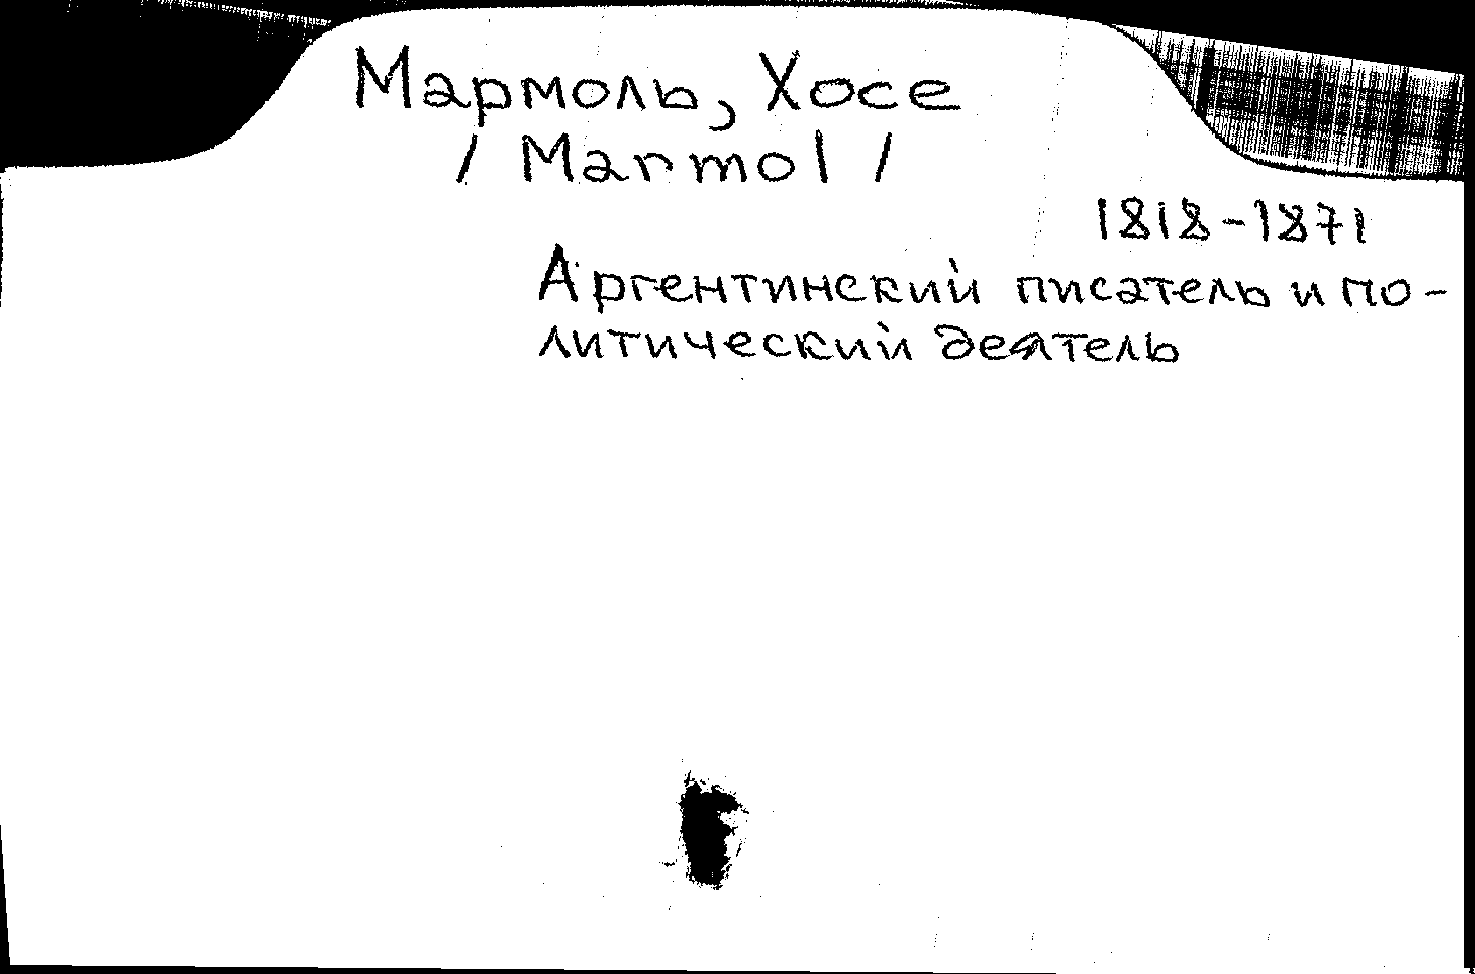 Мармоль, Хосе
/ Marmol /
1818-1871
Аргентинский писатель и по-
литический деятель